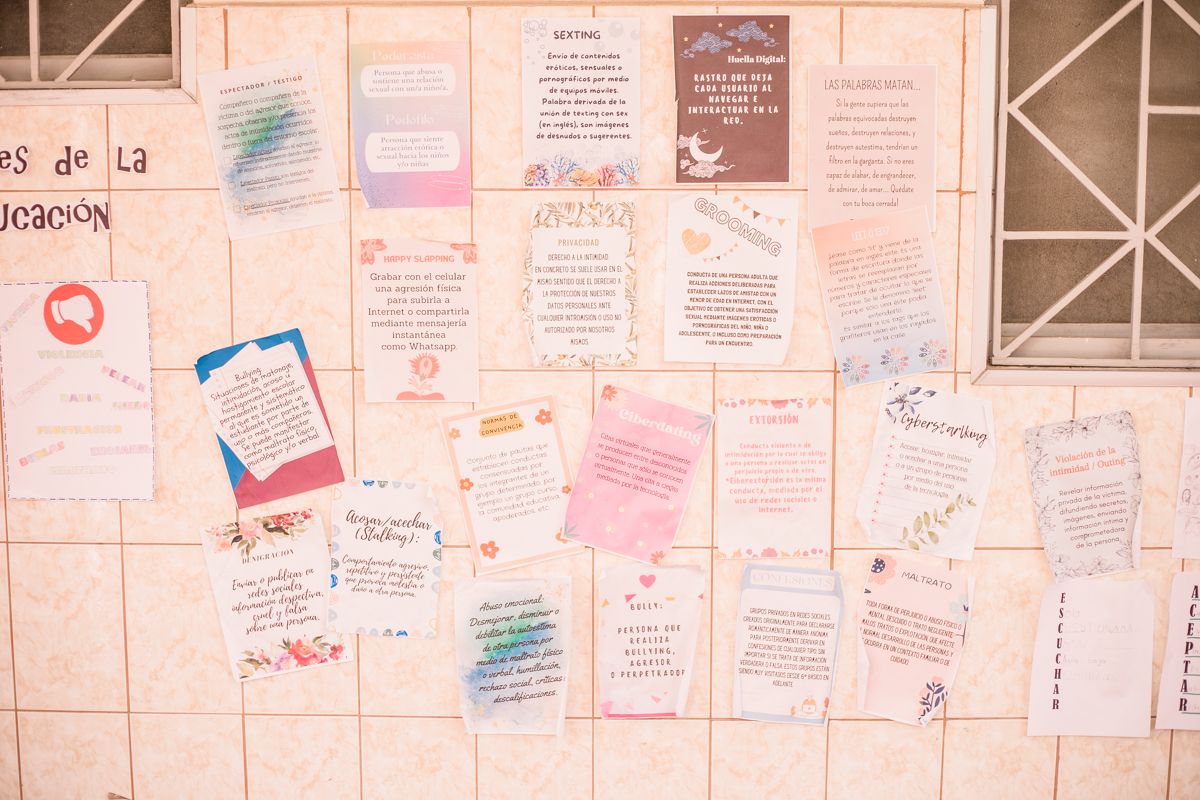 es de la
ucación
VIOLENCIA
PELEAR
RABIA
FRUSTRACION
BURLAS
ESPECTADOR / TESTIGO
Compañero o compañera de la
víctima o del agresor que conoce,
sospecha, observa y/o presencia los
actos de intimidación ocurridos
dentro o fuera del entorno escolar
Pederasta
Persona que abusa o
sostiene una relación
sexual con un/a niño/a.
Pedófilo
Persona que siente
atracción erótica o
sexual hacia los niños
y/o niñas
SEXTING
Envío de contenidos
eróticos, sensuales o
pornográficos por medio
de equipos móviles.
Palabra derivada de la
unión de texting con sex
(en inglés), son imágenes
de desnudos o sugerentes.
Huella Digital:
RASTRO QUE DEJA
CADA USUARIO AL
NAVEGAR E
INTERACTUAR EN LA
RED.
LAS PALABRAS MATAN...
Si la gente supiera que las
palabras equivocadas destruyen
sueños, destruyen relaciones, y
destruyen autoestima, tendrían un
filtro en la garganta. Si no eres
capaz de alabar, de engrandecer,
de admirar, de amar... Quédate
con tu boca cerrada!
HAPPY SLAPPING
Grabar con el celular
una agresión física
para subirla a
Internet o compartirla
mediante mensajería
instantánea
como Whatsapp.
PRIVACIDAD
DERECHO A LA INTIMIDAD
EN CONCRETO SE SUELE USAR EN EL
MISMO SENTIDO QUE EL DERECHO A
LA PROTECCIÓN DE NUESTROS
DATOS PERSONALES ANTE
CUALQUIER INTROMISIÓN O USO NO
AUTORIZADO POR NOSOTROS
MISMOS
GROOMING
CONDUCTA DE UNA PERSONA ADULTA QUE
REALIZA ACCIONES DELIBERADAS PARA
ESTABLECER LAZOS DE AMISTAD CON UN
MENOR DE EDAD EN INTERNET, CON EL
OBJETIVO DE OBTENER UNA SATISFACCIÓN
SEXUAL MEDIANTE IMÁGENES ERÓTICAS O
PORNOGRÁFICAS DEL NIÑO, NIÑA O
ADOLESCENTE, O INCLUSO COMO PREPARACIÓN
PARA UN ENCUENTRO.
Léase como "lit" y viene de la
palabra en inglés elite. Es una
forma de escritura donde las
letras se reemplazan por
números y caracteres especiales
para tratar de ocultar lo que se
escribe. Se le denomina "leet"
porque solo una élite podía
entenderlo.
Es similar a los tags que los
grafiteros usan en los rayados
en la calle.
Bullying
Situaciones de matonaje,
intimidación, acoso u
hostigamiento escolar
permanente y sistemático
al que es sometido un
estudiante por parte de
uno o más compañeros.
Se puede manifestar
como maltrato físico,
psicológico y/o verbal
NORMAS DE
CONVIVENCIA
Conjunto de pautas que
establecen conductas
consensuadas por
los integrantes de un
grupo determinado, por
ejemplo un grupo curso,
la comunidad educativa,
apoderados, etc
Ciberdating
Citas virtuales que generalmente
se producen entre desconocidos
o personas que sólo se conocen
virtualmente. Una cita a ciegas
mediada por la tecnología.
EXTORSIÓN
Conducta violenta o de
intimidación por la cual se obliga
a una persona a realizar actos en
perjuicio propio o de otro.
*Ciberextorsión es la misma
conducta, mediada por el
uso de redes sociales o
internet.
Cyberstartlking
Acosar, hostigar, intimidar
o acechar a una persona
o a un grupo de personas
por medio del uso
de la tecnología.
Violación de la
intimidad / Outing
Revelar información
privada de la víctima,
difundiendo secretos,
imágenes, enviando
información íntima y
comprometedora
de la persona.
DENIGRACIÓN
Enviar o publicar en
redes sociales
información despectiva,
cruel y falsa
sobre una persona.
Acosar/acechar
(Stalking):
Comportamiento agresivo,
repetitivo y persistente
que provoca molestia o
daño a otra persona.
Abuso emocional:
Desmejorar, disminuir o
debilitar la autoestima
de otra persona por
medio de maltrato físico
o verbal, humillación,
rechazo social, críticas,
descalificaciones.
BULLY:
PERSONA QUE
REALIZA
BULLYING,
AGRESOR
O PERPETRADOR
CONFESIONES
GRUPOS PRIVADOS EN REDES SOCIALES
CREADOS ORIGINALMENTE PARA DECLARARSE
ROMÁNTICAMENTE DE MANERA ANÓNIMA
PARA POSTERIORMENTE DERIVAR EN
CONFESIONES DE CUALQUIER TIPO, SIN
IMPORTAR SI SE TRATA DE INFORMACIÓN
VERDADERA O FALSA. ESTOS GRUPOS ESTÁN
SIENDO MUY VISITADOS DESDE 6° BÁSICO EN
ADELANTE
MALTRATO
TODA FORMA DE PERJUICIO O ABUSO FÍSICO O
MENTAL, DESCUIDO O TRATO NEGLIGENTE,
MALOS TRATOS O EXPLOTACIÓN, QUE AFECTE
NORMAL DESARROLLO DE LAS PERSONAS Y
OCURRA EN UN CONTEXTO FAMILIAR O DE
CUIDADO.
ESCUCHAR
ACEPTAR